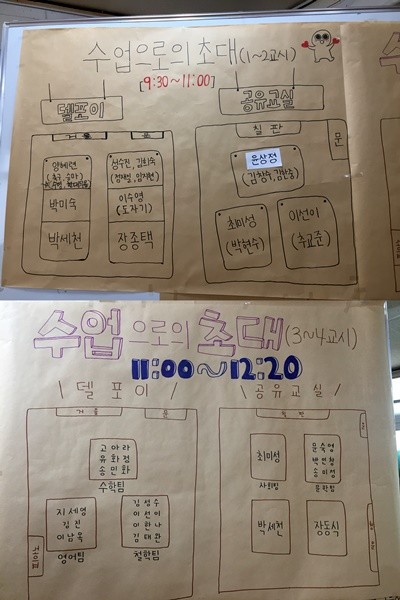 수업으로의 초대 (1~2교시)
[9:30~11:00]
델포이
공유교실
거울 문
칠판
문
성수진, 김희숙
이수영
(도자기)
박미숙
박세천
장종택
윤상정
(김창수, 김한승)
최미성
(박현수)
이선이
(추교준)
수업으로의 초대 (3~4교시)
11:00~12:20
\ 델포이 /
\ 공유교실 /
거울 문
칠판
고아라
유화정
송민화
수학팀
지세영
김진
이남옥
영어팀
김성수
이선이
이한나
김태완
철학팀
최미성
사회팀
문숙영
송미정
문학팀
박세천
장동식